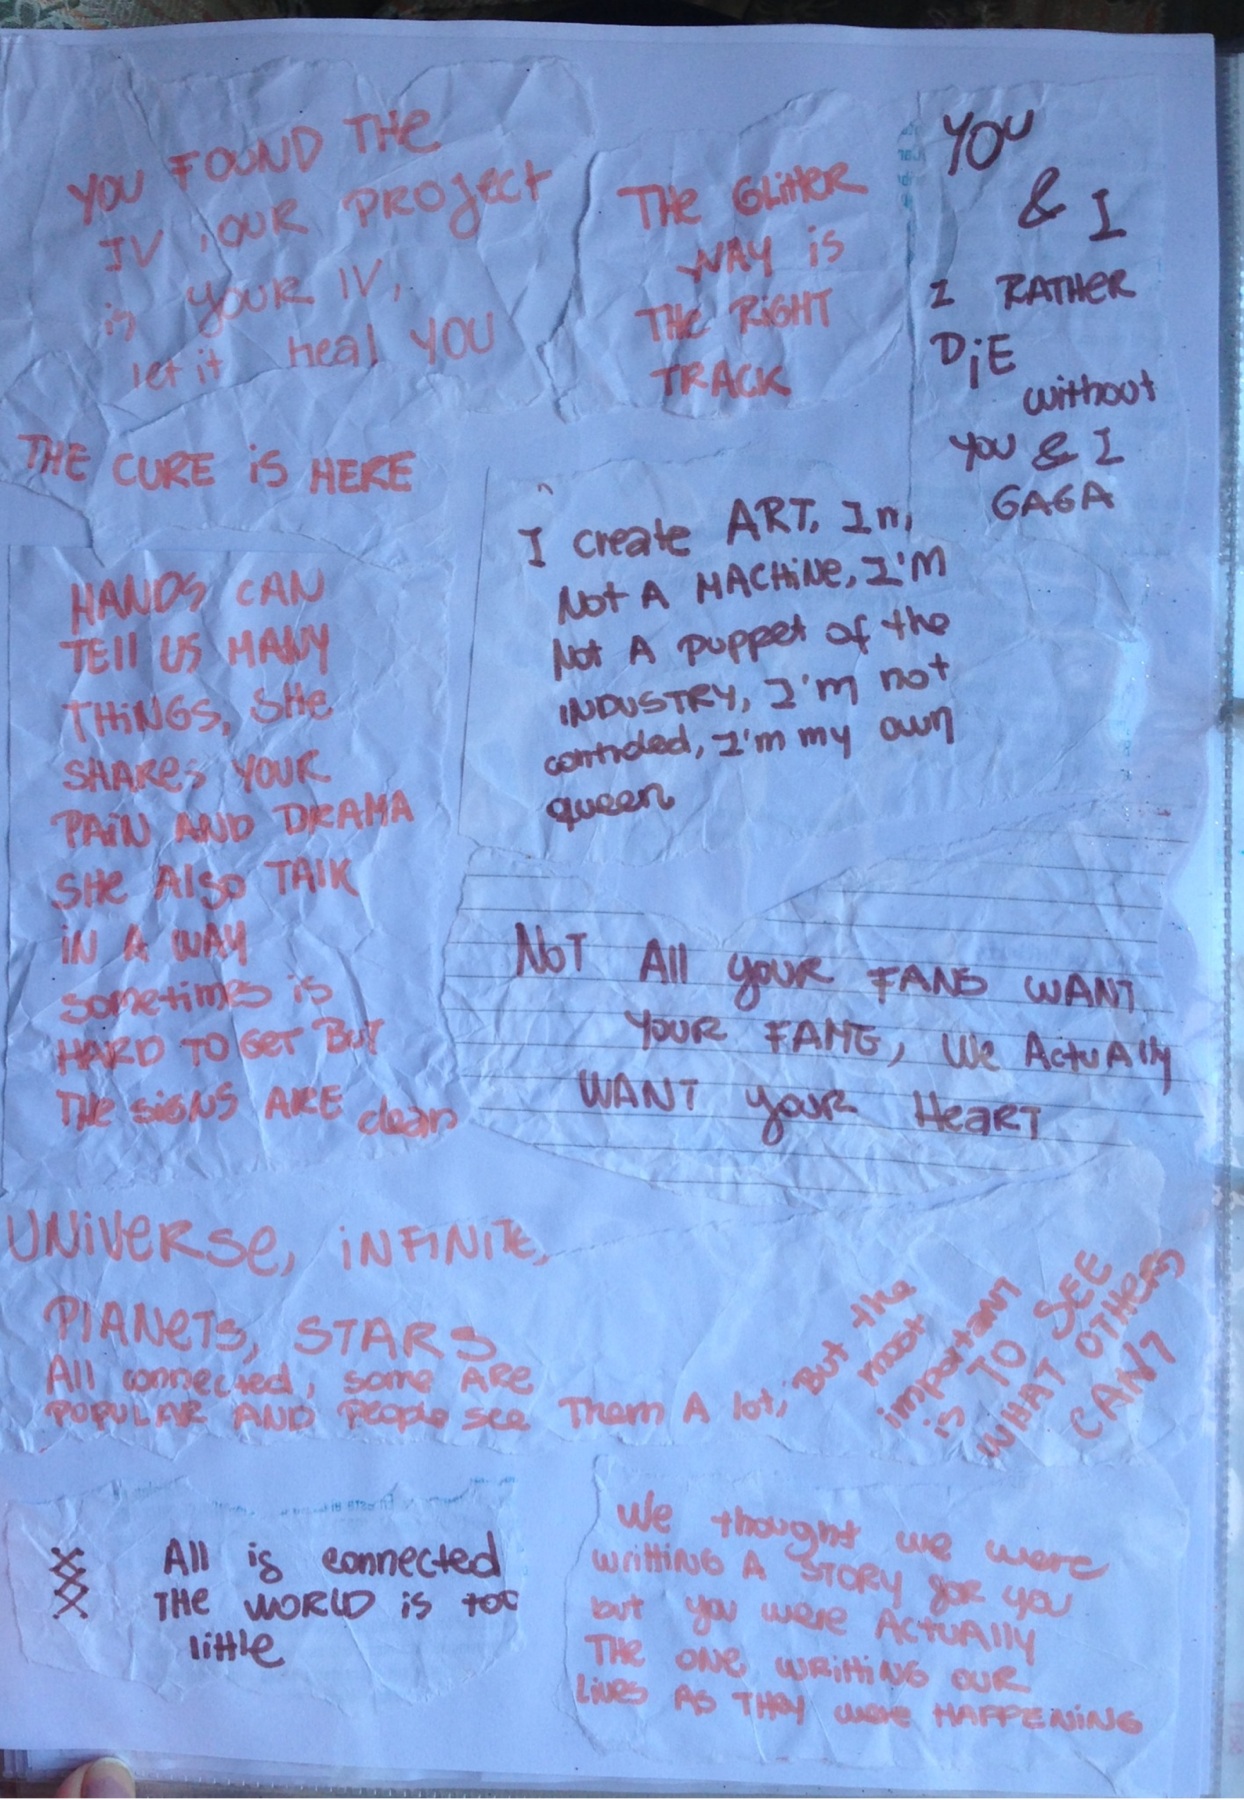 YOU FOUND THE
IV, OUR PROJECT
is YOUR IV,
let it heal YOU
THE GLitteR
WAY iS
THE RiGHT
TRACK
YOU
& I
I RATHER
DiE
without
YOU & I
GAGA
THE CURE iS HERE
I create ART, Im,
Not A MACHiNe, I'M
Not A puppet of the
iNDUSTRY, I'm not
controled, I'm my own
queen
HANDS CAN
TEll US MANY
THiNGS, SHe
SHARes YOUR
PAiN AND DRAMA
SHe Also TAlK
iN A WAY
sometimes is
HARD TO GeT BUT
THe SiGNS ARE clear
NoT All YOUR FANS WANT
YOUR FAME, We ActuAlly
WANT YOUR HeaRT
UNiVeRSe, iNFiNiTe,
PlANeTs, STARS
All connected, some ARe
POPULAR AND People see Them A lot,
But the
most
important
is TO SEE
WHAT OTHERS
CAN'T
All is connected
THe WORLD is too
little
We thought we were
WRittiNG A STORY for YOU
but you were ActuAlly
THe one wRittiNG OUR
Lives AS THey were HAPPENiNG